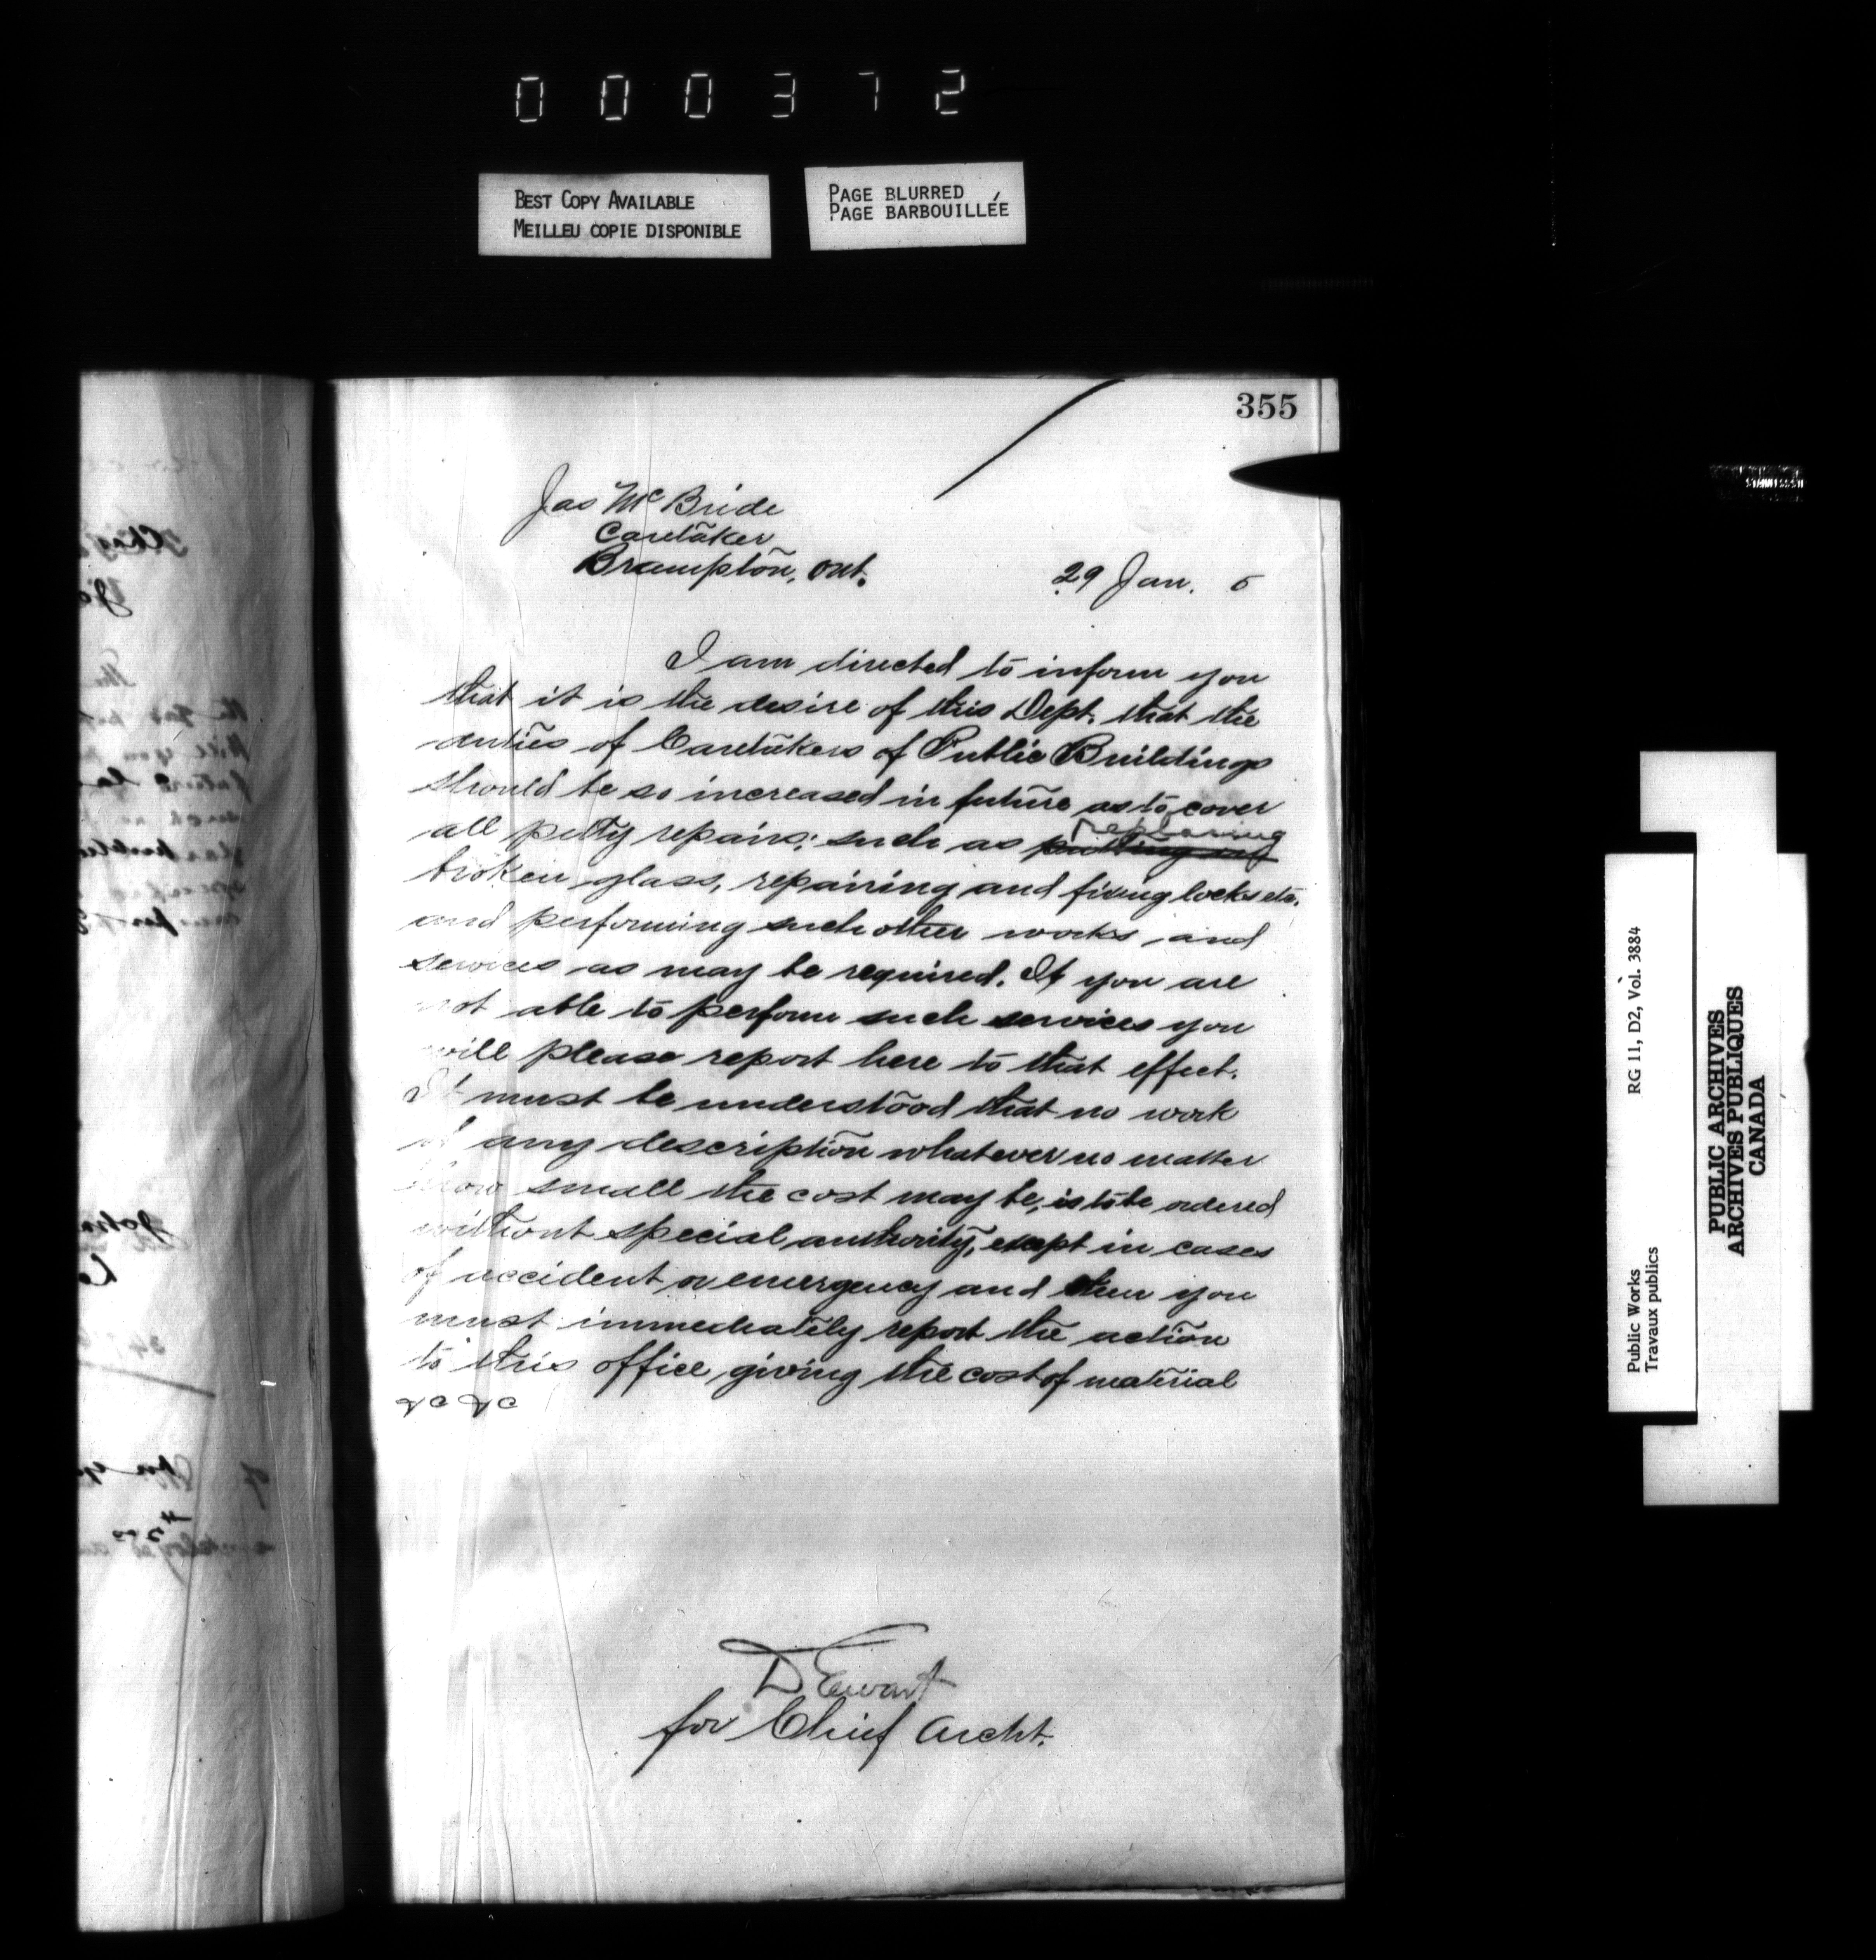 000372
BEST COPY AVAILABLE
MEILLEU COPIE DISPONIBLE
PAGE BLURRED
PAGE BARBOUILLÉE
355
Jas McBride
Caretaker
Brampton, Ont.
29 Jan. 5
I am directed to inform you
that it is the desire of this Dept. that the
duties of Caretakers of Public Buildings
should be so increased in future as to cover
all petty repairs; such as putting in replacing
broken glass, repairing and fixing locks etc.
and performing such other works and
services as may be required. If you are
not able to perform such services you
will please report here to that effect.
It must be understood that no work
of any description whatever no matter
how small the cost may be, is to be ordered
without special authority, except in cases
of accident or emergency and then you
must immediately report the action
to this office giving the cost of material
&c &c
D Ewart
for Chief Archt.
Public Works
Travaux publics
RG 11, D2, Vol. 3884
PUBLIC ARCHIVES
ARCHIVES PUBLIQUES
CANADA